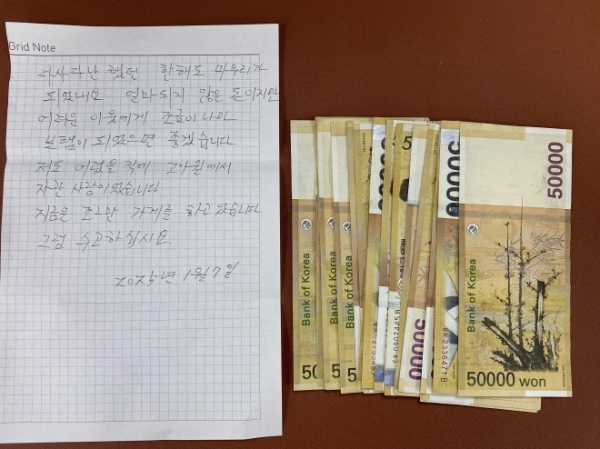 Grid Note
다사다난 했던 한해도 마무리가
되었네요 얼마되지 않은 돈이지만
어려운 이웃에게 조금이나마
보탬이 되었으면 좋겠습니다
저도 어렸을적에 고아원에서
자란 사람이었습니다
지금은 조그만 가게를 하고 있습니다
그럼 수고하십시요.
2025년 1월 7일
50000
Bank of Korea
Bank of Korea
Bank of Korea
Bank of Korea
50000
50000
50000 won